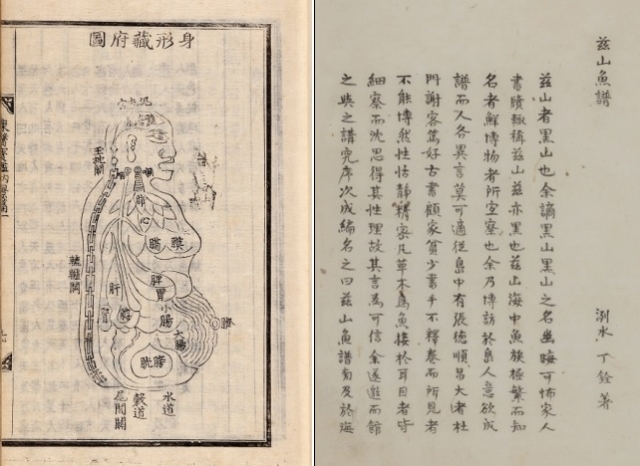 身形藏府圖
泥丸宮
髓海
玉枕關
轆轤關
肺
心
膈
膜
脾
胃
肝
小腸
大腸
臍
膀胱
水道
穀道
尾閭關
玆山魚譜
洌水 丁銓 著
玆山者黑山也余謫黑山黑山之名幽晦可怖家人
書牘輒稱玆山玆亦黑也玆山海中魚族極繁而知
名者鮮博物者所宜察也余乃博訪於島人意欲成
譜而人各異言莫可適從島中有張德順昌大者杜
門謝客篤好古書顧家貧少書手不釋卷而所見者
不能博然性恬靜精密凡草木鳥魚接於耳目者皆
細察而沈思得其性理故其言爲可信余遂邀而館
之與之講究序次成編名之曰玆山魚譜旁及於海